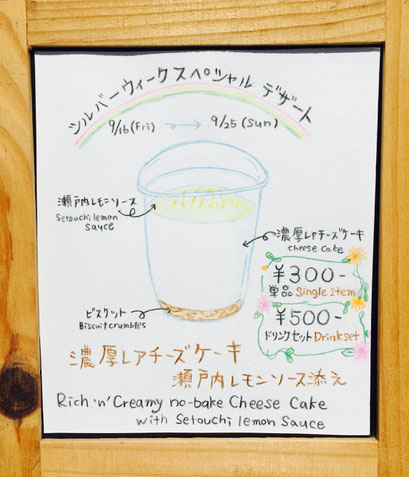 シルバーウィークスペシャル デザート
9/16(Fri) → 9/25(Sun)
瀬戸内レモンソース
Setouchi lemon
sauce
濃厚レアチーズケーキ
cheese cake
¥300-
単品 Single Item
¥500-
ドリンクセット Drinkset
ビスケット
Biscuit crumbles
濃厚レアチーズケーキ
瀬戸内レモンソース添え
Rich 'n' Creamy no-bake Cheese Cake
with Setouchi lemon Sauce